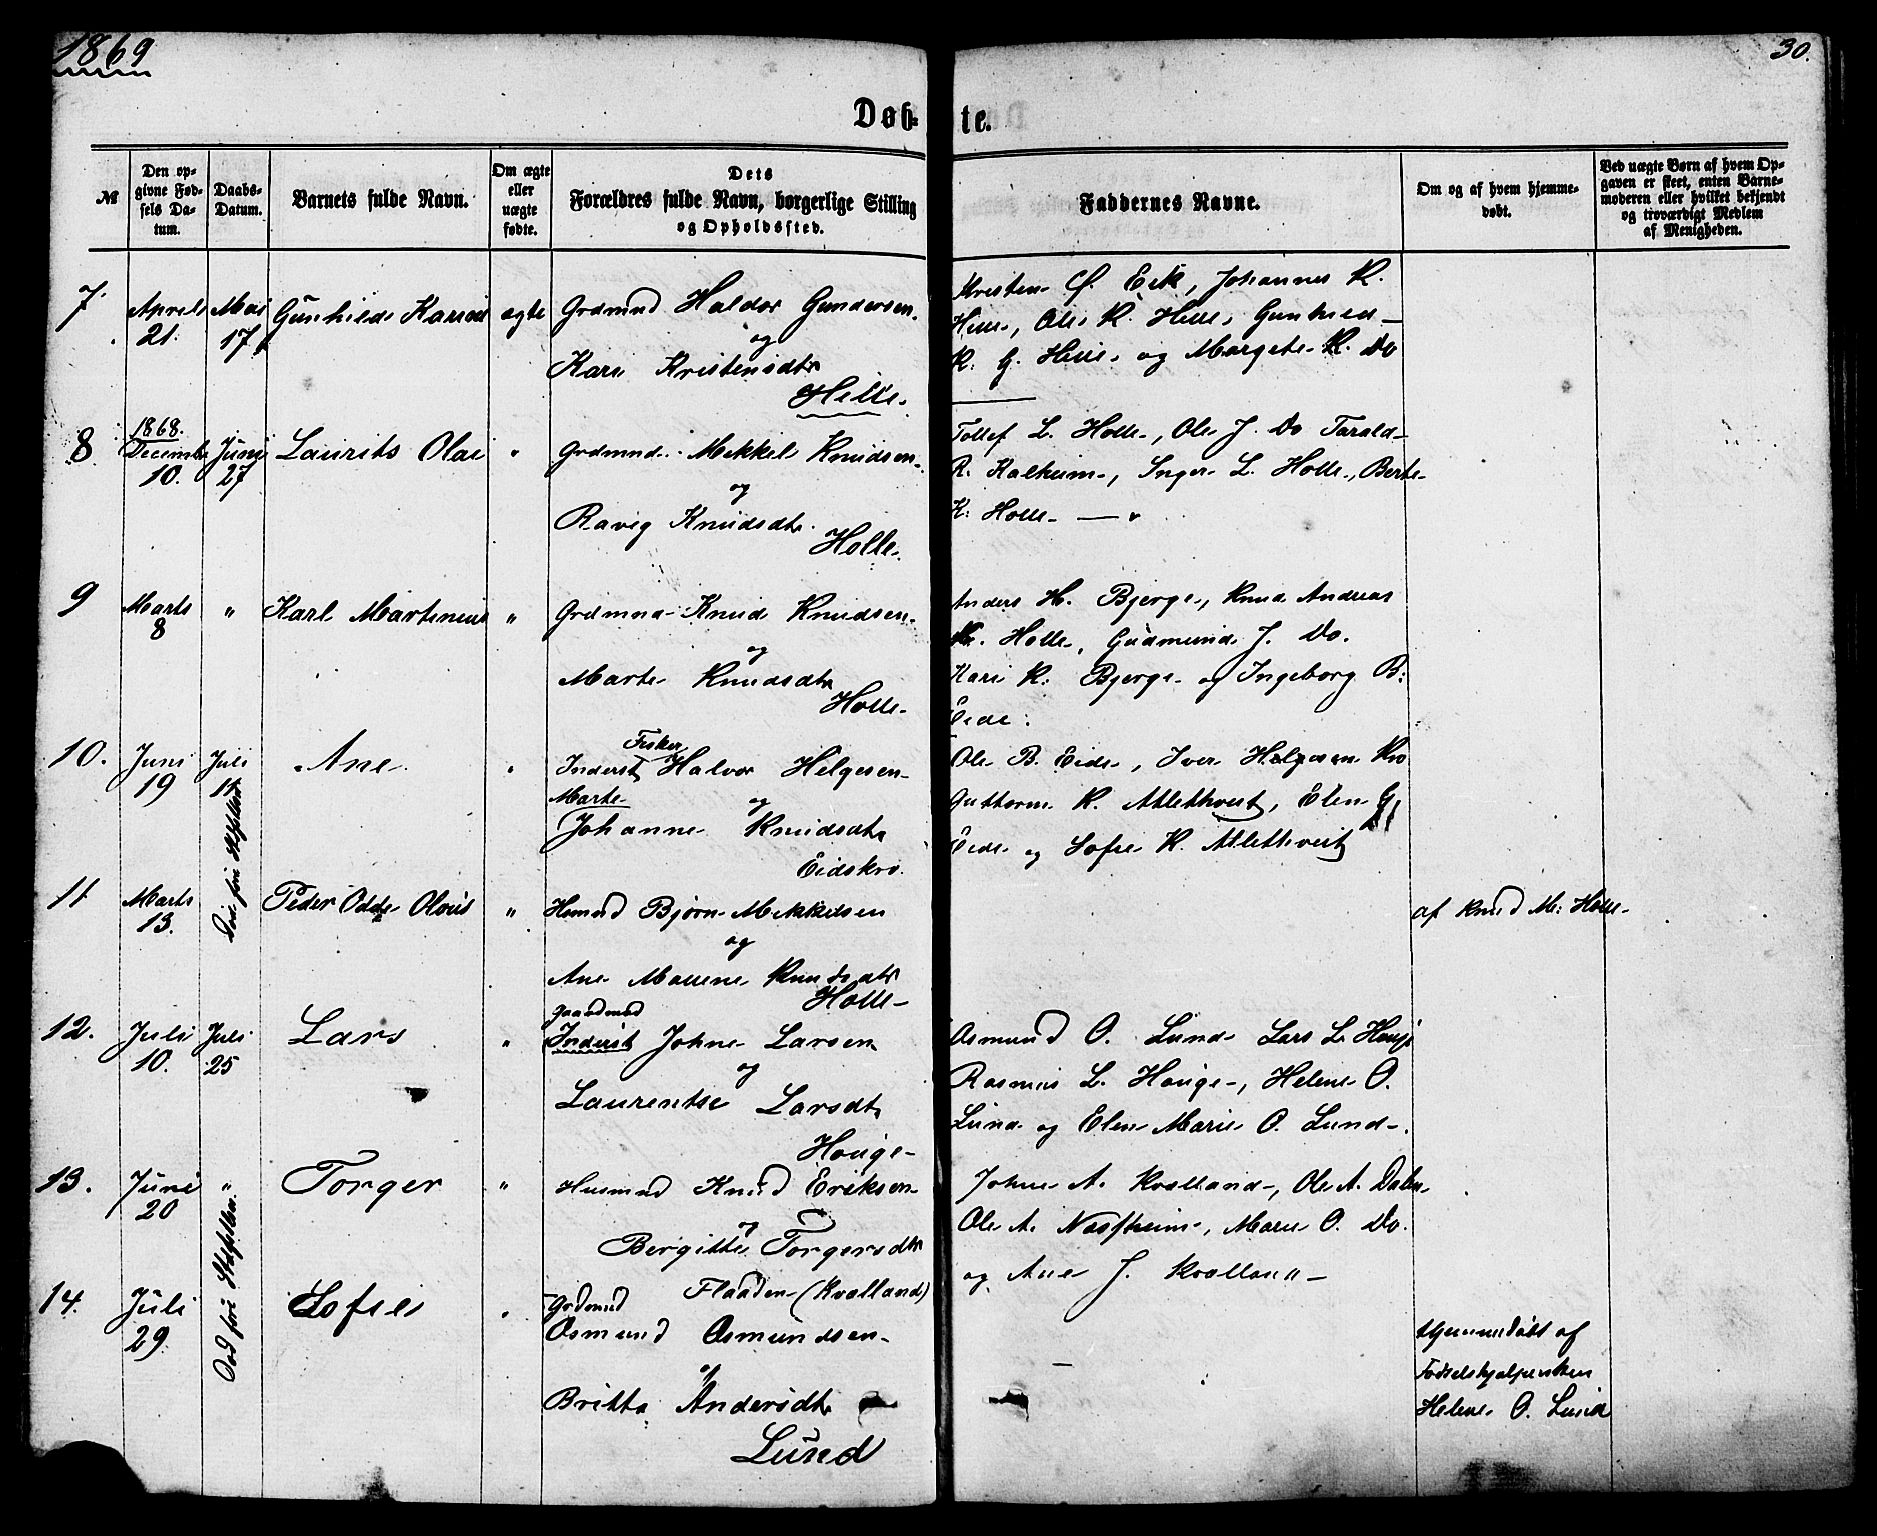 1869
30.
Døb-
te.
№
Den op-
givne Fød-
sels Da-
tum.
Daabs-
Datum.
Barnets fulde Navn.
Om ægte
eller
uægte
fødte.
Dets
Forældres fulde Navn, borgerlige Stilling
og Opholdssted.
Faddernes Navne.
Om og af hvem hjemme-
døbt.
Ved uægte Børn af hvem Op-
gaven er skeet, enten Barne-
moderen eller hvilket bekjendt
og troværdigt Medlem
af Menigheden.
7.
April
21.
Mai
17
ægte
Grdmnd Haldor Gundersen
og
Kari Kristensdtr
Helle.
Kristen Eek, Johannes K.
Helle, Ole K. Helle, Gunhild
K. G. Helle og Margete K. Do
8
1868.
December
10.
Juni
27
Laurits Olai
"
Grdmnd. Mekkel Knudsen
og
Ravig Knudsdtr.
Holle.
Tollef L. Holle, Ole J. Do Tarald
R. Kalheim, Inger L. Holle, Berte
K. Holle
9
Marts
8
"
Karl Martinius
"
Grdmnd Knud Knudsen
og
Marte Knudsdtr
Holle
Anders H. Bjerge, Knud Andreas
Holle, Gudmund J. Do.
Kari K. Bjerge og Ingeborg B.
Eide.
10.
Juni
19
Juli
11
Ane
"
Fisker
Inderst Halvor Helgesen
Marte og
Johanne Knudsdtr
Eidskro.
Ole B. Eide, Iver Helgesen Kro
Guttorm K. Atlethveit, Elen G.
Eide og Sofie K. Atlethveit
11
Marts
13.
Peder Odde Olous
"
Husmnd Bjørn Mekkelsen
og
Ane Mallene Knudsdtr
Holle
af Knud M. Holle
12.
Juli
10.
Juli
25
Lars
"
Gaardmnd
Inderst Johne Larsen
og
Laurentse Larsdtr
Houge
Osmund O. Lund Lars L. Houge
Rasmus L. Houge, Helene O.
Lund og Elen Marie O. Lund.
13.
Juni
20
"
Torger
"
Husmnd Knud Eriksen
og
Bergitte Torgersdtr
Flaaden (Kvalland)
Johne A. Kvalland, Ole A. Dalen
Ole A. Næsheim, Marie O. Do.
og Ane J. Kvalland
14.
Juli
29
Sofie
"
Grdmnd
Osmund Osmundsen
og
Britta Andersdtr
Lund
Hjemmedøbt af
Fødselshjelpersken
Helene O. Lund